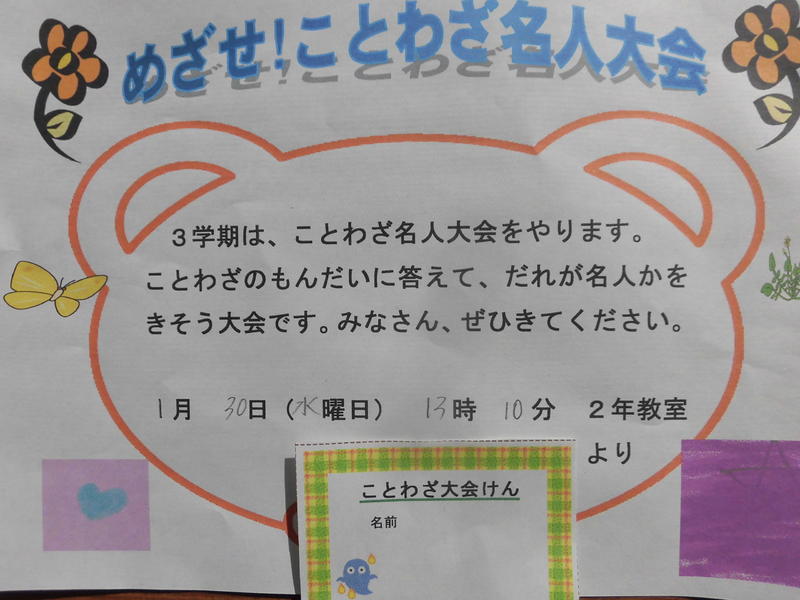 めざせ!ことわざ名人大会
3学期は、ことわざ名人大会をやります。
ことわざのもんだいに答えて、だれが名人かを
きそう大会です。みなさん、ぜひきてください。
1月 30日（水曜日） 13時 10分 2年教室
より
ことわざ大会けん
名前